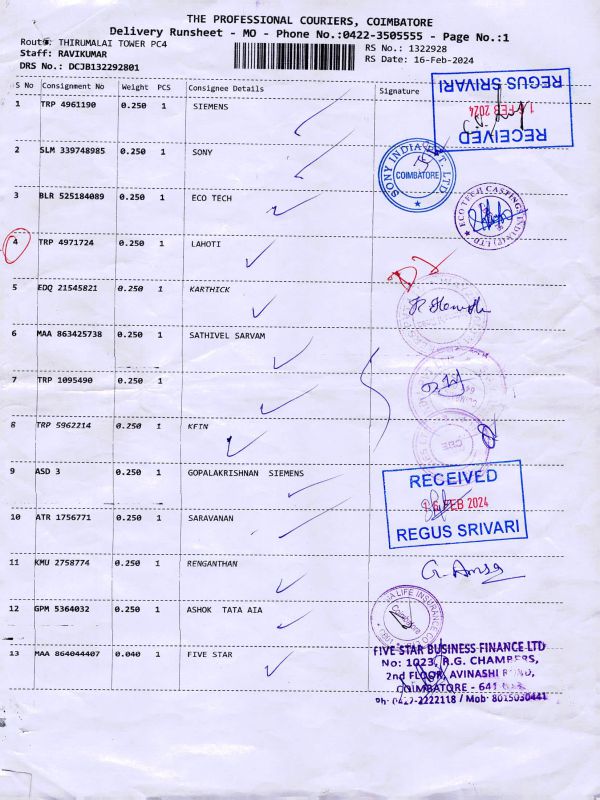 THE PROFESSIONAL COURIERS, COIMBATORE
Delivery Runsheet - MO - Phone No.:0422-3505555 - Page No.:1
Route: THIRUMALAI TOWER PC4 RS No.: 1322928
Staff: RAVIKUMAR RS Date: 16-Feb-2024
DRS No.: DCJB132292801
S No Consignment No Weight PCS Consignee Details Signature
REGUS SRIVARI
16 FEB 2024
RECEIVED
1 TRP 4961190 0.250 1 SIEMENS
2 SLM 339748985 0.250 1 SONY
SONY INDIA PVT. LTD
COIMBATORE
3 BLR 525184089 0.250 1 ECO TECH
ECO TECH CASTING INDIA (P) LTD
4 TRP 4971724 0.250 1 LAHOTI
5 EDQ 21545821 0.250 1 KARTHICK
6 MAA 863425738 0.250 1 SATHIVEL SARVAM
7 TRP 1095490 0.250 1
8 TRP 5962214 0.250 1 KFIN
CBE
9 ASD 3 0.250 1 GOPALAKRISHNAN SIEMENS
RECEIVED
16 FEB 2024
REGUS SRIVARI
10 ATR 1756771 0.250 1 SARAVANAN
11 KMU 2758774 0.250 1 RENGANTHAN
12 GPM 5364032 0.250 1 ASHOK TATA AIA
LIFE INSURANCE CO
Coimbatore
13 MAA 864044407 0.040 1 FIVE STAR
FIVE STAR BUSINESS FINANCE LTD
No: 1023, R.G. CHAMBERS,
2nd FLOOR, AVINASHI ROAD,
COIMBATORE - 641
Ph: 0427-2222118 / Mob: 8015030441